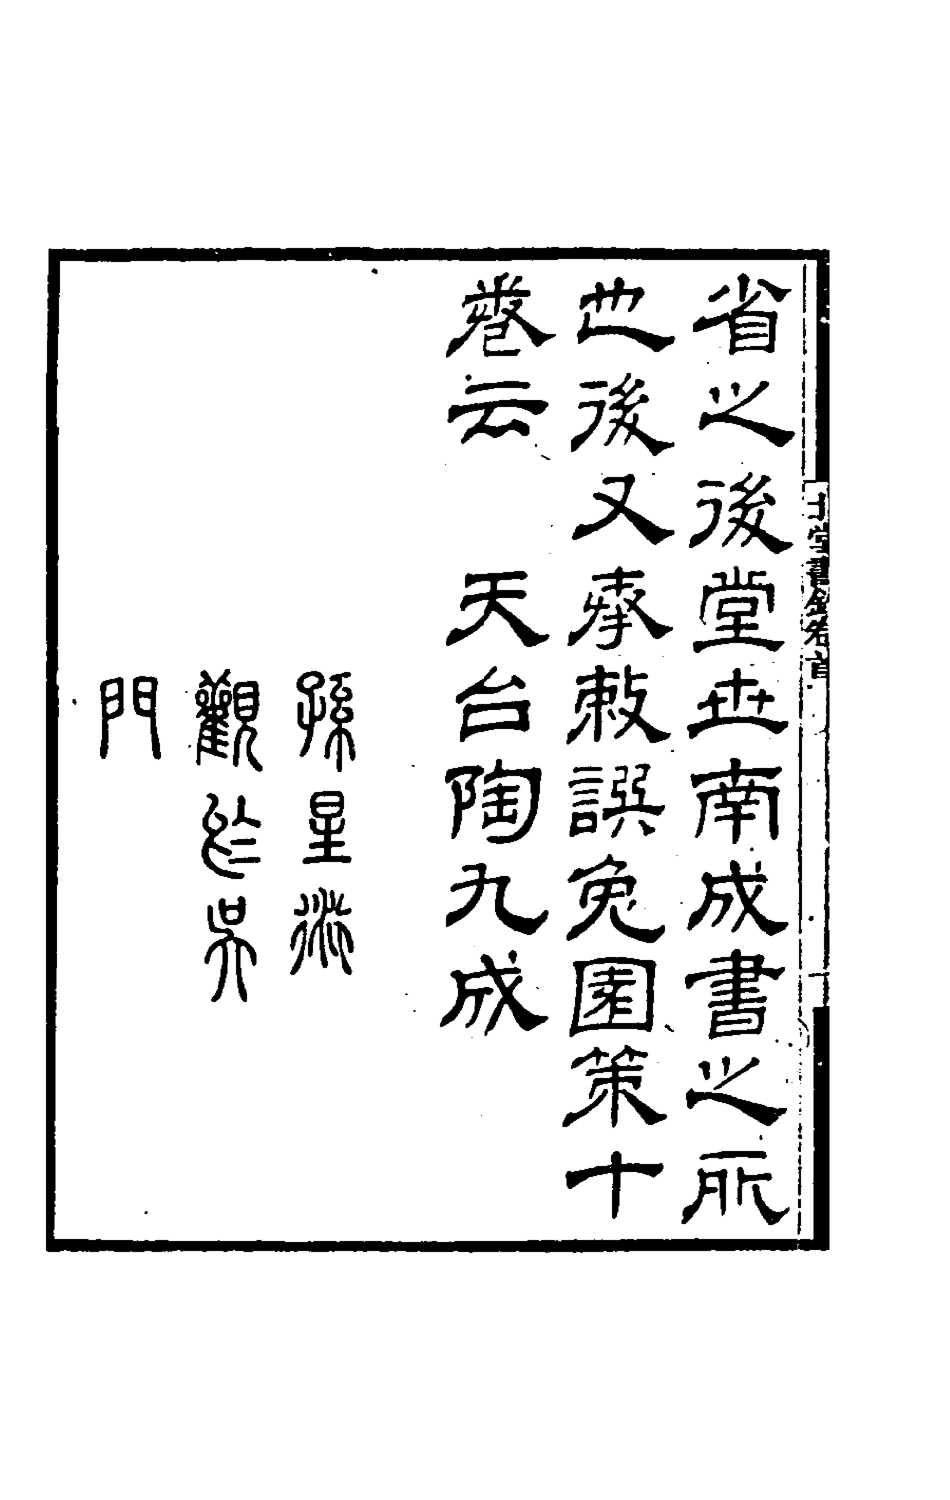 省之後堂世南成書之所
也後又奉敕譔兔園策十
卷云 天台陶九成
孫星衍
觀於吳
門
北堂書鈔卷首
一